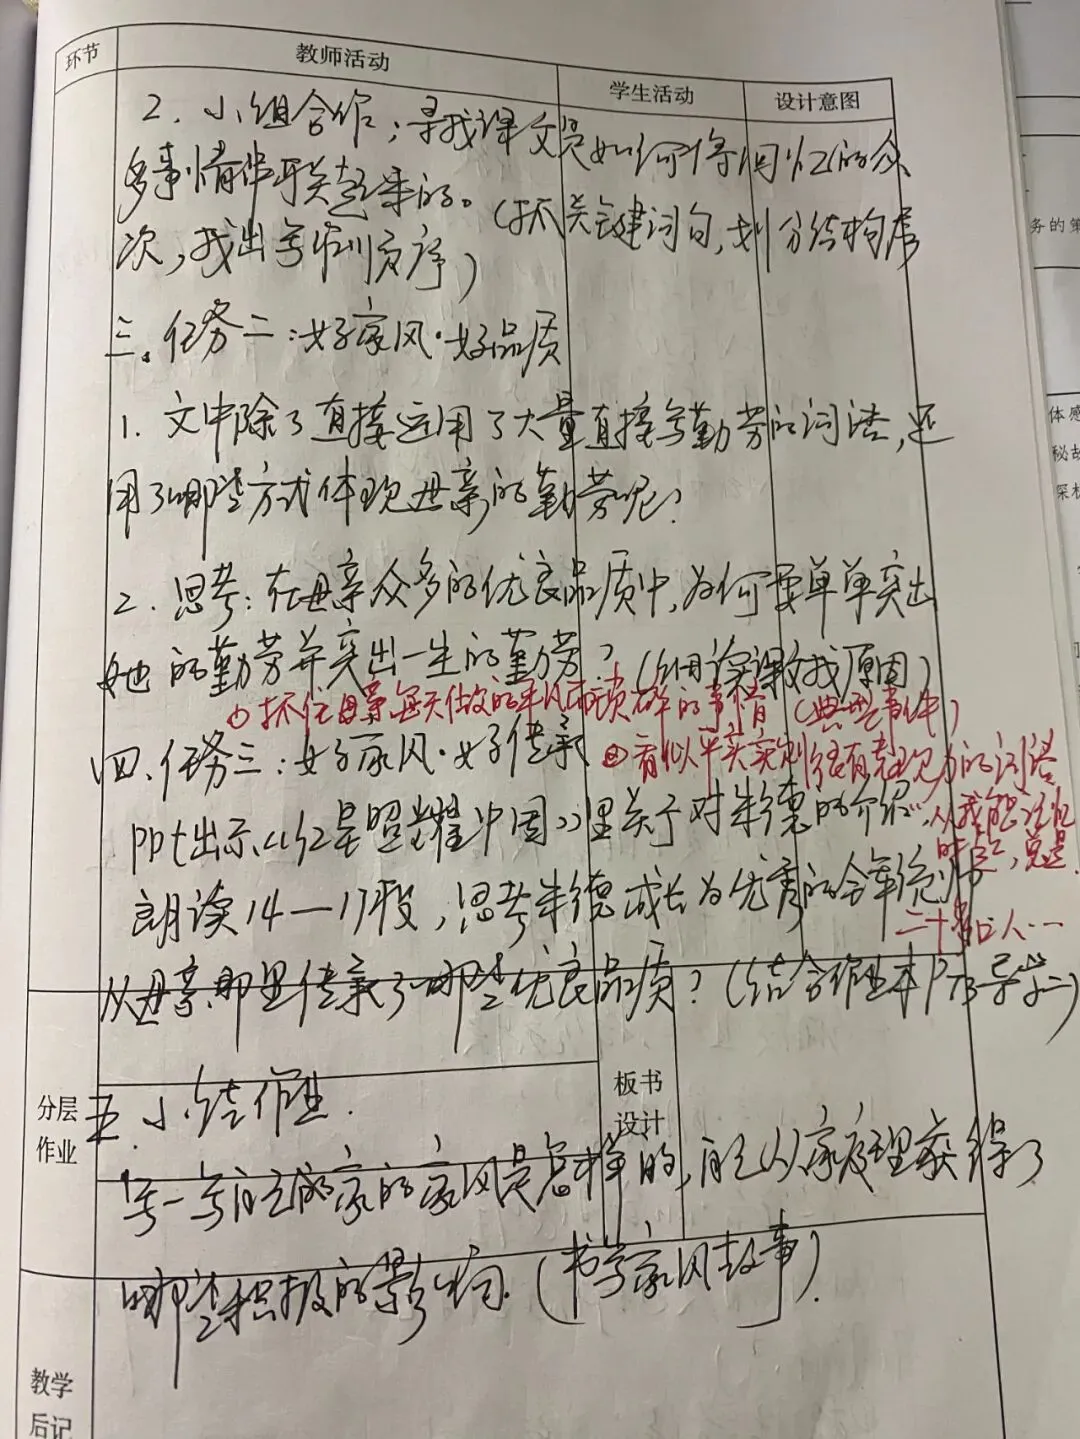 环节 教师活动 学生活动 设计意图
2. 小组合作；寻找课文是如何将回忆的众
多事情串联起来的。（抓关键词句，划分结构层
次，找出写作顺序）
三、任务二：好家风·好品质
1. 文中除了直接运用了大量直接写勤劳的词语，还
用了哪些方式体现母亲的勤劳呢？
2. 思考：在母亲众多的优良品质中，为何要单单突出
她的勤劳并突出一生的勤劳？（细读课文找原因）
①抓住母亲每天做的平凡而琐碎的事情（典型事件）
四、任务三：好家风·好传承
②看似平实实则很有表现力的词语
ppt出示《红星照耀中国》里关于对朱德的介绍，
从我能记忆
时起，总是
朗读14—17段，思考朱德成长为优秀的会军统帅
二十多口人……
从母亲那里传承了哪些优良品质？（结合作业本P73导学二）
分层
作业
板书
设计
五、小结作业.
写一写自己的家的家风是怎样的，自己从家庭里获得了
哪些积极的影响.（书写家风故事）.
教学
后记
务的第
体感
秘故
探析